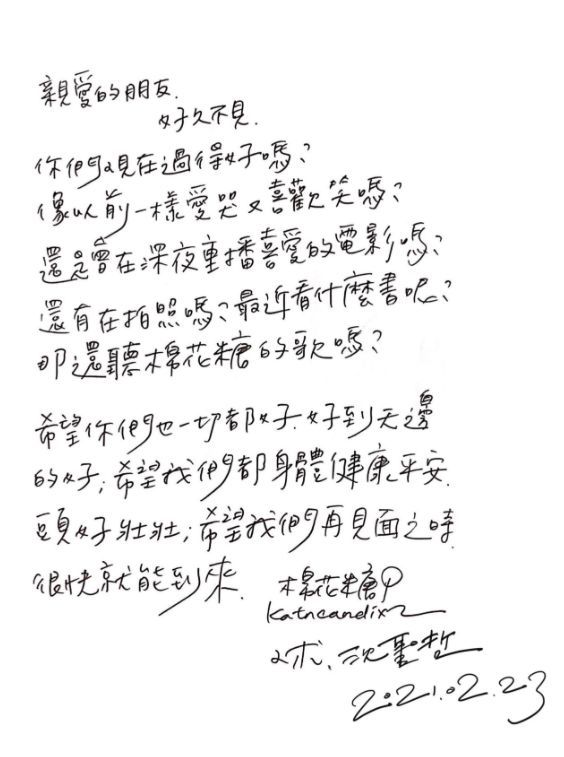 親愛的朋友.
好久不見.
你們現在過得好嗎?
像以前一樣愛哭又喜歡笑嗎?
還是會在深夜重播喜愛的電影嗎?
還有在拍照嗎?最近看什麼書呢?
那還聽棉花糖的歌嗎?
希望你們也一切都好.好到天邊
的好;希望我們都身體健康.平安.
頭好壯壯;希望我們再見面之時
很快就能到來.
棉花糖
katncandix
沈聖哲
2021.02.23